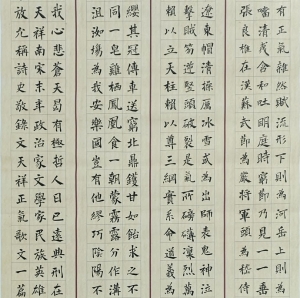 有正氣雜然賦流形下則為河岳上則為
當清夷含和吐明庭時窮節乃見一一垂
張良椎在漢蘇武節為嚴將軍頭為嵇侍
遼東帽清操厲冰雪或為出師表鬼神泣
擊賊笏逆豎頭破裂是氣所磅礴凜烈萬
賴以立天柱賴以尊三綱實系命道義為
纓其冠傳車送窮北鼎鑊甘如飴求之不
同一皂雞棲鳳凰食一朝蒙霧露分作溝
沮洳場為我安樂國豈有他繆巧陰陽不
我心悲蒼天曷有極哲人日已遠典刑在
天祥南宋末年政治家文學家民族英雄
放允稱詩史敬錄文天祥正氣歌文一篇